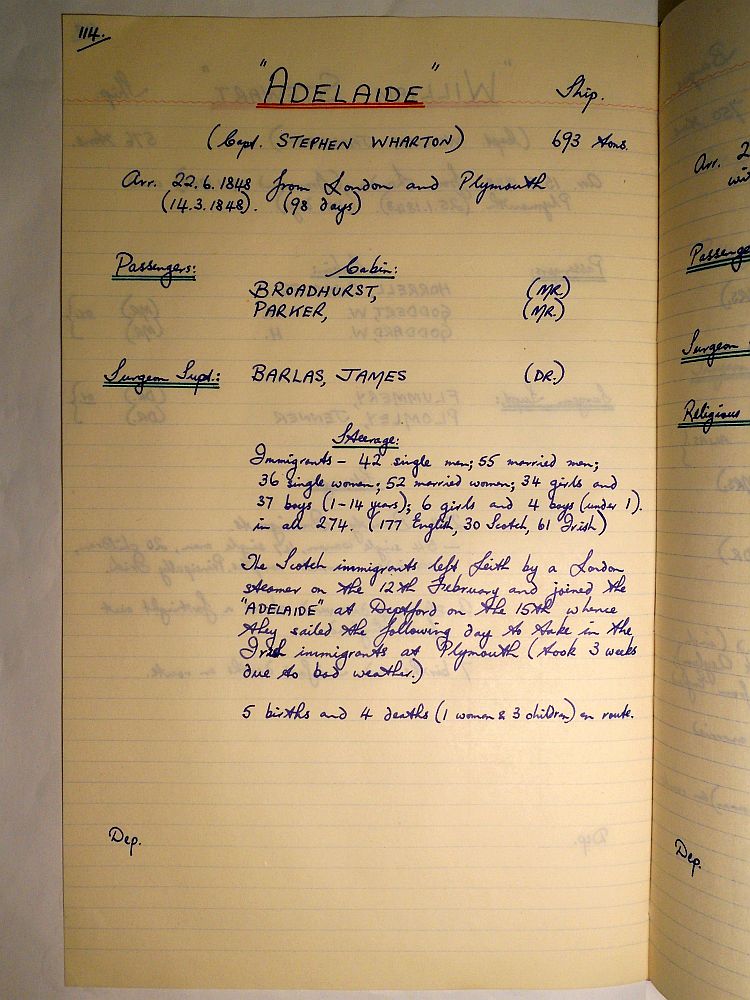 114.
"ADELAIDE" Ship.
(Capt. STEPHEN WHARTON) 693 tons.
Arr. 22.6.1848 from London and Plymouth
(14.3.1848). (98 days)
Passengers: Cabin:
BROADHURST, (MR.)
PARKER, (MR.)
Surgeon Supt.: BARLAS, JAMES (DR.)
Steerage:
Immigrants - 42 single men; 55 married men;
36 single women; 52 married women; 34 girls and
37 boys (1-14 years); 6 girls and 4 boys (under 1).
in all 274. (177 English, 30 Scotch, 61 Irish)
The Scotch immigrants left Leith by a London
steamer on the 12th February and joined the
"ADELAIDE" at Deptford on the 15th whence
they sailed the following day to take in the
Irish immigrants at Plymouth (took 3 weeks
due to bad weather.)
5 births and 4 deaths (1 woman & 3 children) en route.
Dep.
Arr. 2
Passenge
Surgeon
Religious
Dep.